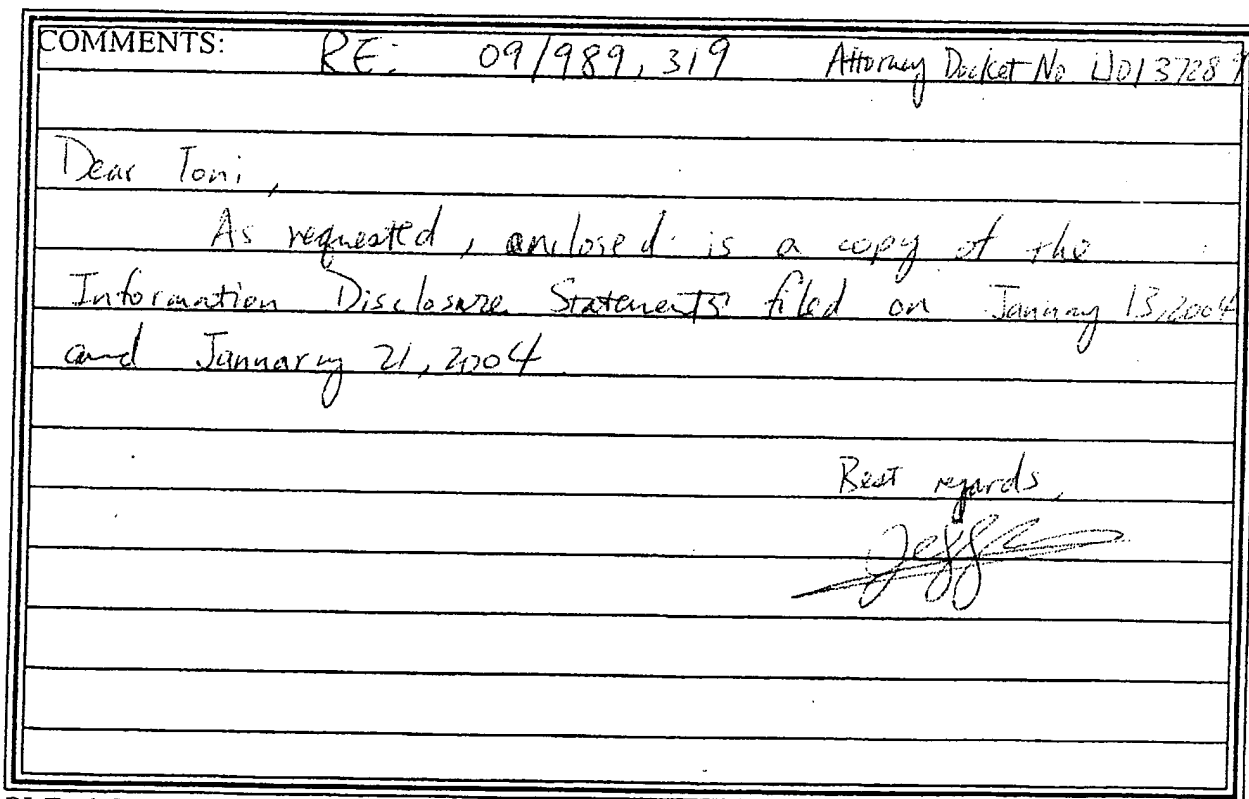 COMMENTS: RE: 09/989,319 Attorney Docket No
Dear Toni,
As requested, enclosed is a copy of the
Information Disclosure Statements filed on January 13, 2004
and January 21, 2004.
Best regards,